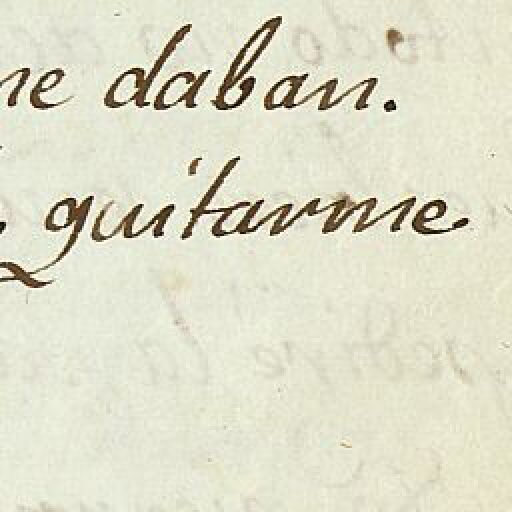 ne daban.
quitarme